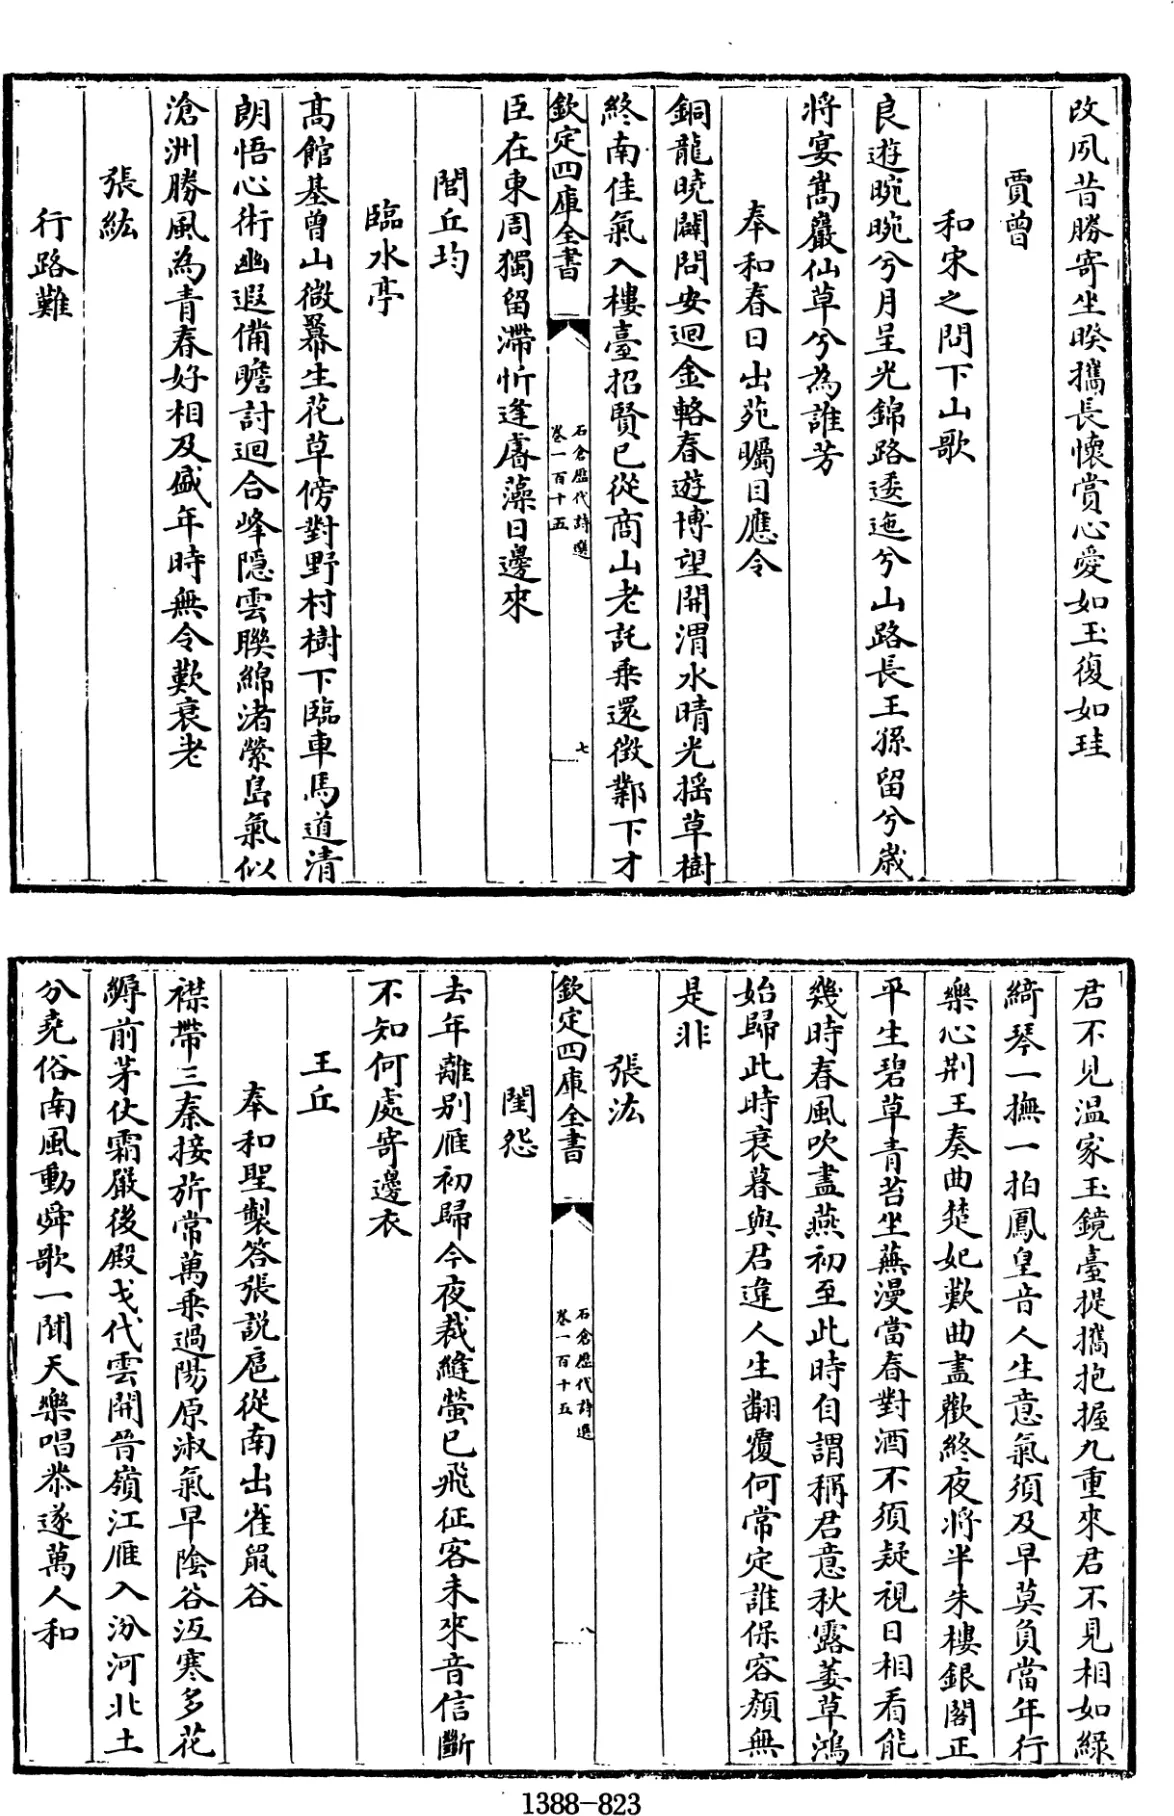 改夙昔勝寄坐暌攜長懷賞心愛如玉復如珪
賈曾
和宋之問下山歌
良遊晼晼兮月呈光錦路逶迤兮山路長王孫留兮歲
將宴嵩巖仙草兮為誰芳
奉和春日出苑矚目應令
銅龍曉闢問安迴金輅春遊博望開渭水晴光揺草樹
終南佳氣入樓臺招賢已從商山老託乗還徴鄴下才
欽定四庫全書
石倉歴代詩選
卷一百十五
七
臣在東周獨留滯忻逢睿藻日邊來
閭丘均
臨水亭
髙館基曾山微幕生花草傍對野村樹下臨車馬道清
朗悟心術幽遐備瞻討迴合峰隱雲聯綿渚縈島氣似
滄洲勝風為青春好相及盛年時無令歎衰老
張紘
行路難
君不見温家玉鏡臺提攜抱握九重來君不見相如緑
綺琴一撫一拍鳳皇音人生意氣須及早莫負當年行
樂心荆王奏曲楚妃歎曲盡歡終夜將半朱樓銀閣正
平生碧草青苔坐蕪漫當春對酒不須疑視日相看能
幾時春風吹盡燕初至此時自謂稱君意秋露萎草鴻
始歸此時衰暮與君違人生翻覆何常定誰保容顔無
是非
張汯
欽定四庫全書
石倉歴代詩選
卷一百十五
八
閨怨
去年離别雁初歸今夜裁縫螢已飛征客未來音信斷
不知何處寄邊衣
王丘
奉和聖製答張説扈從南出雀鼠谷
襟帶三秦接旂常萬乗過陽原淑氣早陰谷沍寒多花
縟前茅仗霜嚴後殿戈代雲開晉嶺江雁入汾河北土
分堯俗南風動舜歌一聞天樂唱恭遂萬人和
1388-823